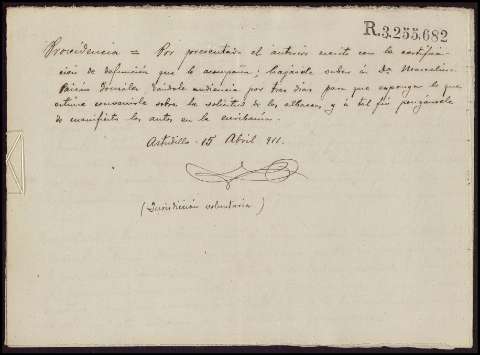 R.3.255.682
Providencia = Por presentado el anterior escrito con la certifica-
ción de defunción que lo acompaña; hágasele saber á Dn Marcelino
González dándole audiencia por tres días para que exponga lo que
estime conveniente sobre la solicitud de los albaceas, y á tal fin pongánsele
de manifiesto los autos en la escribanía.
Astudillo - 15 Abril 911.
(Jurisdicción voluntaria)